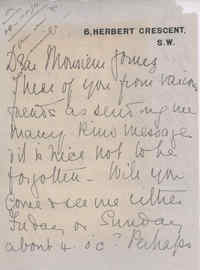 6, HERBERT CRESCENT,
S.W.
Dear Monsieur James
I hear of you from various
friends as sending me
many kind messages
& it is nice not to be
forgotten – Will you
come & see me either
Friday or Sunday
about 4. o'c? Perhaps